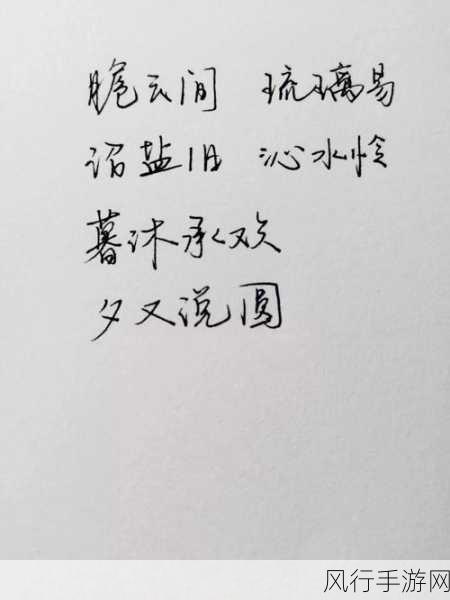 云间 琉璃易
诏盐旧 沁水怜
暮沐承欢
夕又说圆
风行手游网